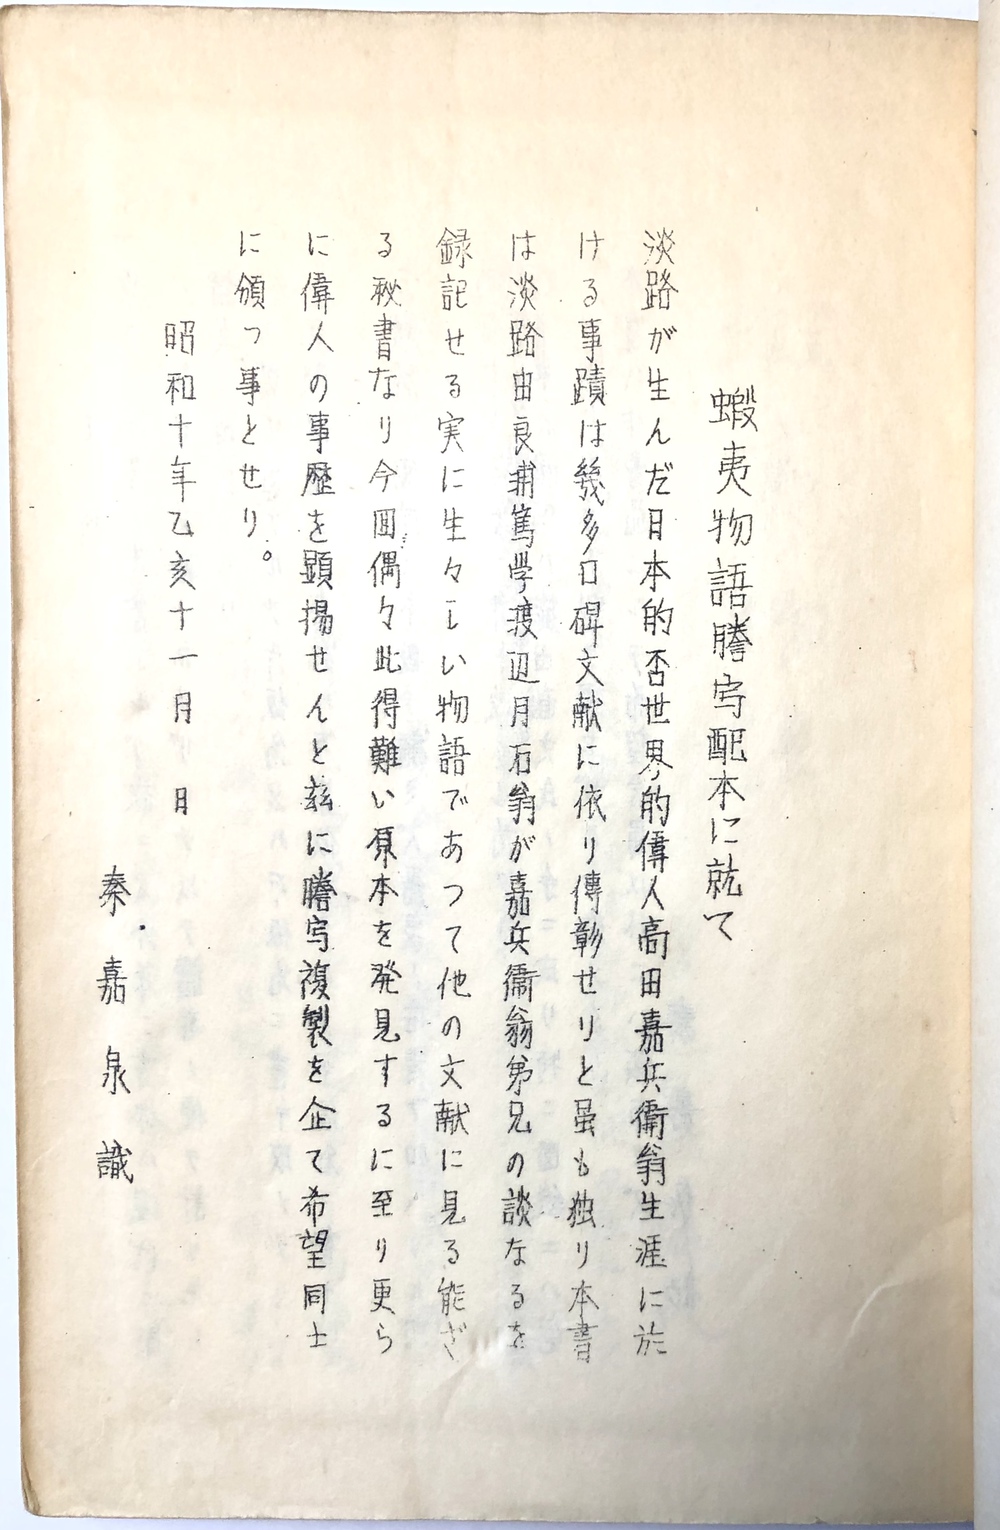 蝦夷物語謄写配本に就て
淡路が生んだ日本的否世界的偉人高田嘉兵衞翁生涯に於
ける事蹟は幾多口碑文献に依り傳彰せりと虽も独り本書
は淡路由良浦篤学渡辺月石翁が嘉兵衞翁弟兄の談なるを
録記せる実に生々しい物語であつて他の文献に見る能ざ
る秘書なり今回偶々此得難い原本を発見するに至り更ら
に偉人の事歴を顕揚せんと茲に謄写複製を企て希望同士
に頒つ事とせり。
昭和十年乙亥十一月　日
秦・嘉泉識